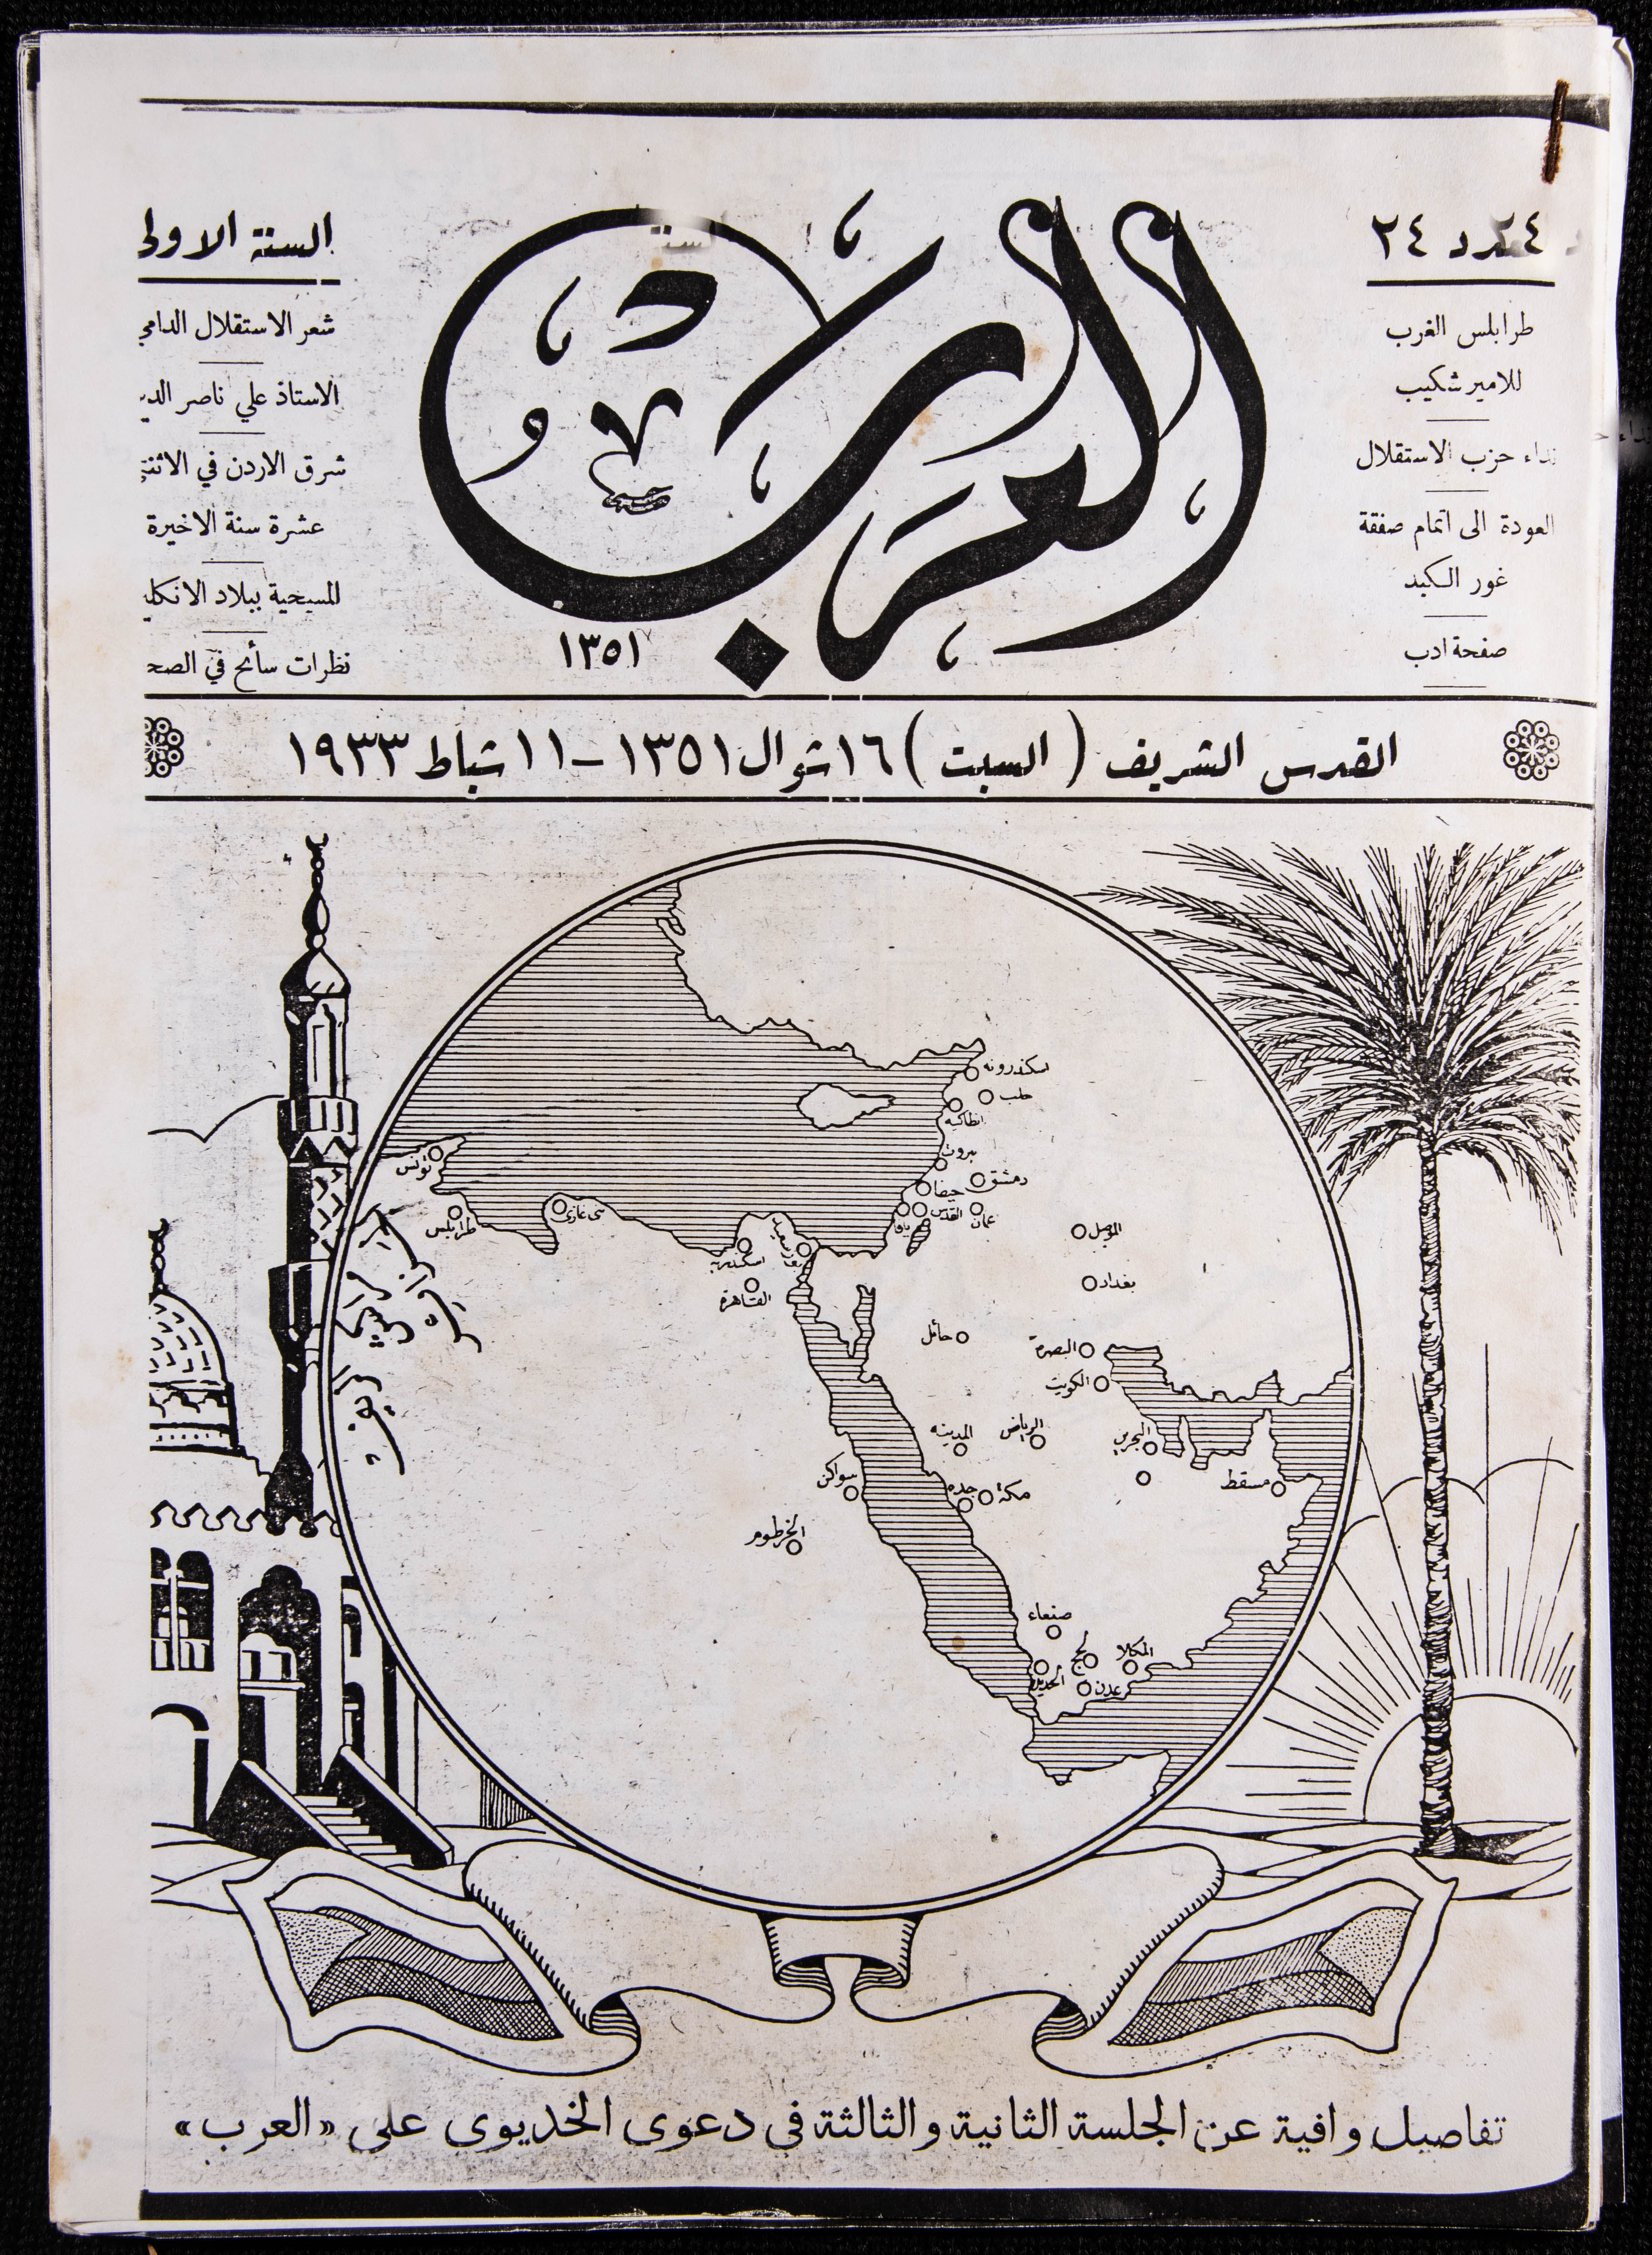 عدد ٢٤
طرابلس الغرب
للامير شكيب
نداء حزب الاستقلال
العودة الى اتمام صفقة
غور الكبد
صفحة ادب
العرب
١٣٥١
السنة الاولى
شعر الاستقلال الدامي
الاستاذ علي ناصر الدين
شرق الاردن في الاثنتي
عشرة سنة الاخيرة
المسيحية ببلاد الانكليز
نظرات سائح في الصح
القدس الشريف (السبت) ١٦ شوال ١٣٥١ - ١١ شباط ١٩٣٣
اسكندرونه
حلب
انطاكيه
بيروت
دمشق
حيفا
القدس
عمان
يافا
تونس
طرابلس
بني غازي
اسكندريه
بور سعيد
القاهرة
الموصل
بغداد
حائل
البصرة
الكويت
المدينه
الرياض
البحرين
سواكن
جده
مكة
مسقط
الخرطوم
صنعاء
لحج
المكلا
الحديده
عدن
تفاصيل وافية عن الجلسة الثانية والثالثة في دعوى الخديوي على «العرب»